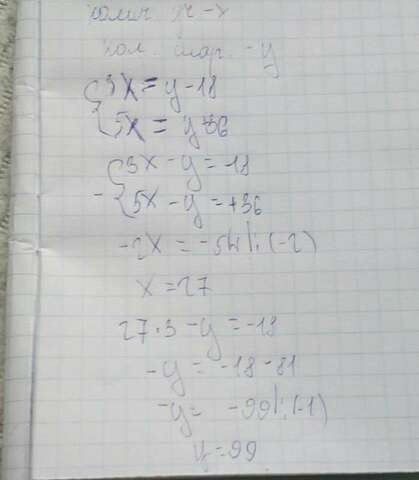 колич - x
кол. шар. - y
{ 3x = y - 18
{ 5x = y 36
- { 3x - y = -18
{ 5x - y = +36
-2x = -54 |:(-2)
x = 27
27 · 3 - y = -18
-y = -18 - 81
-y = -99 |:(-1)
y = 99